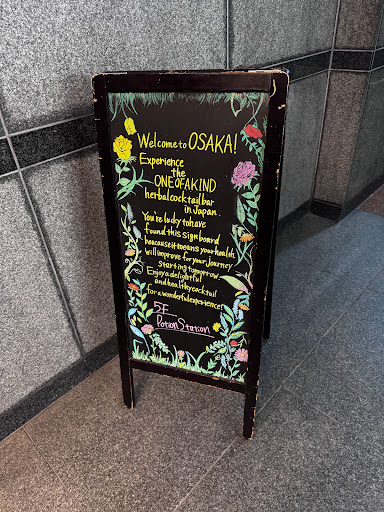 Welcome to OSAKA!
Experience
the
ONE OF A KIND
herbal cocktail bar
in Japan.
You're lucky to have
found this signboard
because it means your health
will improve for your journey
starting tomorrow
Enjoy a delightful
and healthy cocktail
for a wonderful experience!
5F
Potion Station